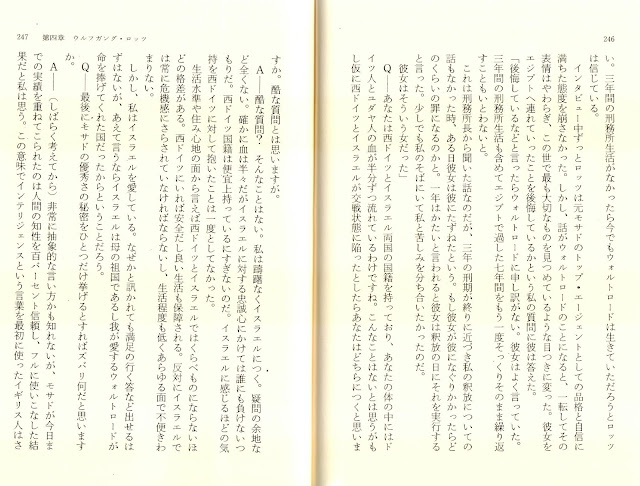 246
い。三年間の刑務所生活がなかったら今でもウォルトロードは生きていただろうとロッツ
は信じている。
インタビュー中ずっとロッツは元モサドのトップ・エージェントとしての品格と自信に
満ちた態度を崩さなかった。しかし、話がウォルトロードのことになると、一転してその
表情はやわらぎ、この世で最も大切なものを見つめているような目つきに変った。彼女を
エジプトへ連れていったことを後悔しているかという私の質問に彼は答えた。
「後悔しているなどと言ったらウォルトロードに申し訳がない。彼女はよく言っていた。
三年間の刑務所生活も含めてエジプトで過した七年間をもう一度そっくりそのまま繰り返
すこともいとわないと。
これは刑務所長から聞いた話なのだが、三年の刑期が終りに近づき私の釈放についての
話もなかった時、ある日彼女は彼にたずねたという。もし彼女が彼になぐりかかったらど
のくらいの罪になるのかと。一年はかたいと言われると彼女は釈放の日にそれを実行する
と言った。少しでも私のそばにいて私と苦しみを分ち合いたかったのだ。
彼女はそういう女だった」
Q――あなたは西ドイツとイスラエル両国の国籍を持っており、あなたの体の中にはド
イツ人とユダヤ人の血が半分ずつ流れているわけですね。こんなことはないとは思うがも
し仮に西ドイツとイスラエルが交戦状態に陥ったとしたらあなたはどちらにつくと思いま
247 第四章 ウルフガング・ロッツ
すか。酷な質問とは思いますが。
A――酷な質問？ そんなことはない。私は躊躇なくイスラエルにつく。疑問の余地な
ど全くない。確かに血は半々だがイスラエルに対する忠誠心にかけては誰にも負けないつ
もりだ。西ドイツ国籍は便宜上持っているにすぎないのだ。イスラエルに感じるほどの気
持を西ドイツに対して抱いたことは一度としてなかった。
生活水準や住み心地の面から言えば西ドイツとイスラエルではくらべものにならないほ
どの格差がある。西ドイツにいれば安全だし良い生活も保障される。反対にイスラエルで
は常に危機感にさらされていなければならないし、生活程度も低くあらゆる面で不便きわ
まりない。
しかし、私はイスラエルを愛している。なぜかと訊かれても満足の行く答など出せるは
ずはないが、あえて言うならイスラエルは母の祖国であるし我が愛するウォルトロードが
命を捧げてくれた国だったからということだろう。
Q――最後にモサドの優秀さの秘密をひとつだけ挙げるとすればズバリ何だと思います
か。
A――（しばらく考えてから）非常に抽象的な言い方かも知れないが、モサドが今日ま
での実績を重ねてこられたのは人間の知性を百パーセント信頼し、フルに使いこなした結
果だと私は思う。この意味でインテリジェンスという言葉を最初に使ったイギリス人はさ